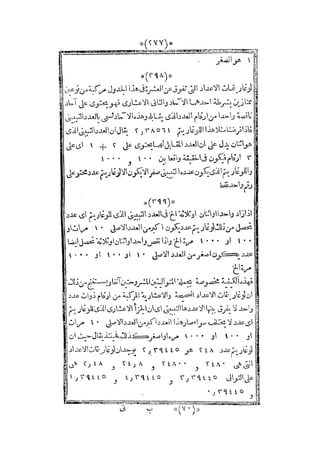 *(٢٧٧)*
١ هو الصفر
*(٣٩٨)*
لوغارتمات الاعداد التى تفوق عن العشرة فى هذا الجدول مركبة من نوعين
متمايزين بشرطة احدهما الآحاد والثانى الاعشارى فهو يحتوى على آحاد
ناقصة واحدا من ارقام العدد الذى يقابله وهذه الآحاد تسمى بالعدد البيّنى
فاذا فرضنا مثلا هذا اللوغاريتم ٣٨٥٦١ر٢ يقال ان العدد البيّنى الذى
هو اثنان يدل على ان العدد المقابل له يحتوى على ٢ + ١ اى على
٣ ارقام فيكون فى الحقيقة واقعا بين ١٠٠ و ١٠٠٠
واللوغاريتم الذى يكون عدده البيّنى صفرا لا يكون الا لوغاريتم عدد محتو على
رقم واحد فقط
*(٣٩٩)*
اذا زاد واحد او اثنان او ثلاثة الخ فى العدد البيّنى الذى للوغاريتم اى عدد
تحصل من ذلك لوغاريتم عدد يكون اكبر من العدد الاصلى ١٠ مرات او
١٠٠ او ١٠٠٠ مرة الخ واذا نقص واحد او اثنان او ثلاثة تحصل ايضا
عدد يكون اصغر من العدد الاصلى ١٠ او ١٠٠ او ١٠٠٠
مرة الخ
فهذه الكيفية مخصوصة بجملة المتواليتين المشروحتين آنفا ويستنتج من ذلك
ان لوغارتمات الاعداد الصحيحة والاعشارية المركبة من ارقام ذوات عدد
واحد لا يفرق بينها الا عددها البيّنى اى ان الجزء الاعشارى الذى للوغاريتم
اى عدد لا يختلف سواء صار هذا العدد اكبر من العدد الاصلى ١٠ مرات
او ١٠٠ او ١٠٠٠ مرة او اصغر كذلك فحينئذ يقال حيث ان
لوغاريتم عدد ٢٤٨ هو ٣٩٤٤٥ر٢ يوجد ان لوغارتمات الاعداد
التى هى ٢٤٨٠ و ٢٤٨٠٠ و ٨ر٢٤ و ٤٨ر٢ هى
على التوالى ٣٩٤٤٥ر٣ و ٣٩٤٤٥ر٤ و ٣٩٤٤٥ر١
و ٣٩٤٤٥ر٠
*(٧٠)* ب نى